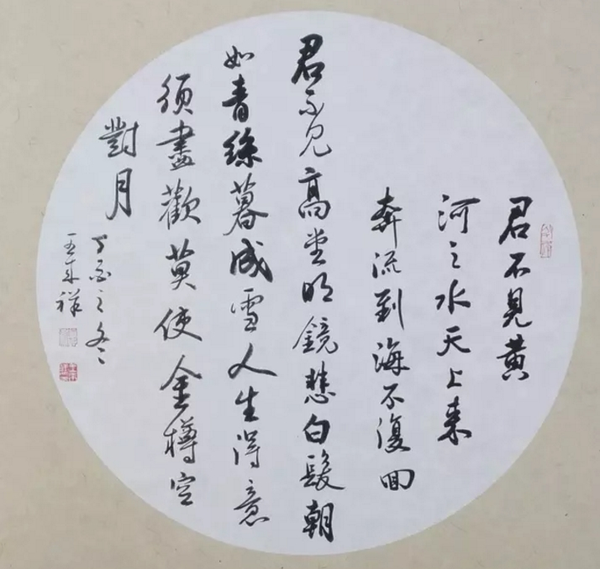 君不見黄
河之水天上来
奔流到海不復回
君不见高堂明鏡悲白髮朝
如青絲暮成雪人生得意
須盡歡莫使金樽空
對月
丁酉之冬
王来祥